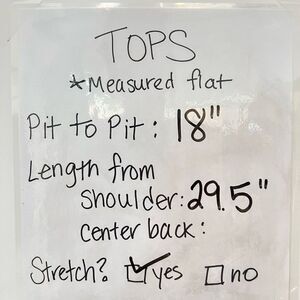 TOPS
*Measured flat
Pit to Pit: 18"
Length from
shoulder: 29.5"
center back:
Stretch? ☑ yes ☐ no